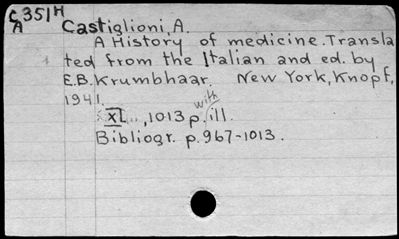 C351H
A
Castiglioni, A.
A History of medicine. Transla
ted from the Italian and ed. by
E.B. Krumbhaar. New York, Knopf,
1941.
with
XI.., 1013 p. ill.
Bibliogr. p. 967-1013.